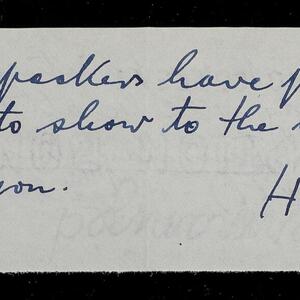 peakers have p
to show to the
you.
H